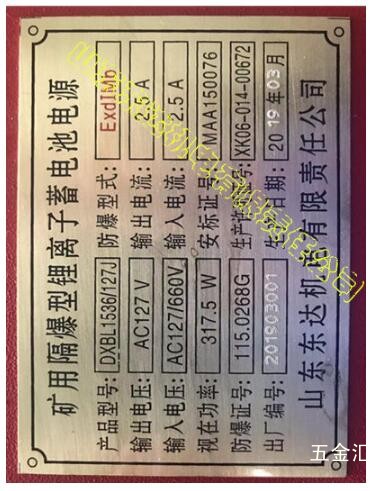 矿用隔爆型锂离子蓄电池电源
产品型号: DXBL1536/127J 防爆型式: ExdIMb
输出电压: AC127 V 输出电流: 2.5 A
输入电压: AC127/660V 输入电流: 2.5 A
视在功率: 317.5 W 安标证号 MAA150076
防爆证号: 115.0268G 生产 号: XK06-014-00672
出厂编号: 201903001 生 日期: 2019年03月
山东东达机电有限责任公司
五金汇